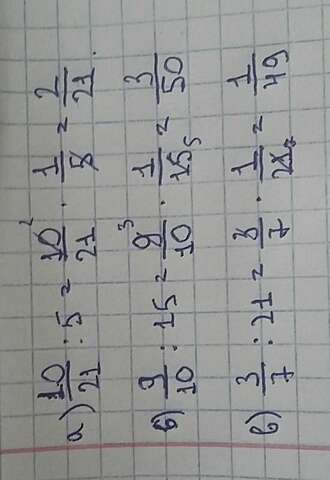 а) 10/21 : 5 = 10/21 · 1/5 = 2/21.
б) 9/10 : 15 = 9/10 · 1/15 = 3/50
в) 3/7 : 21 = 3/7 · 1/21 = 1/49